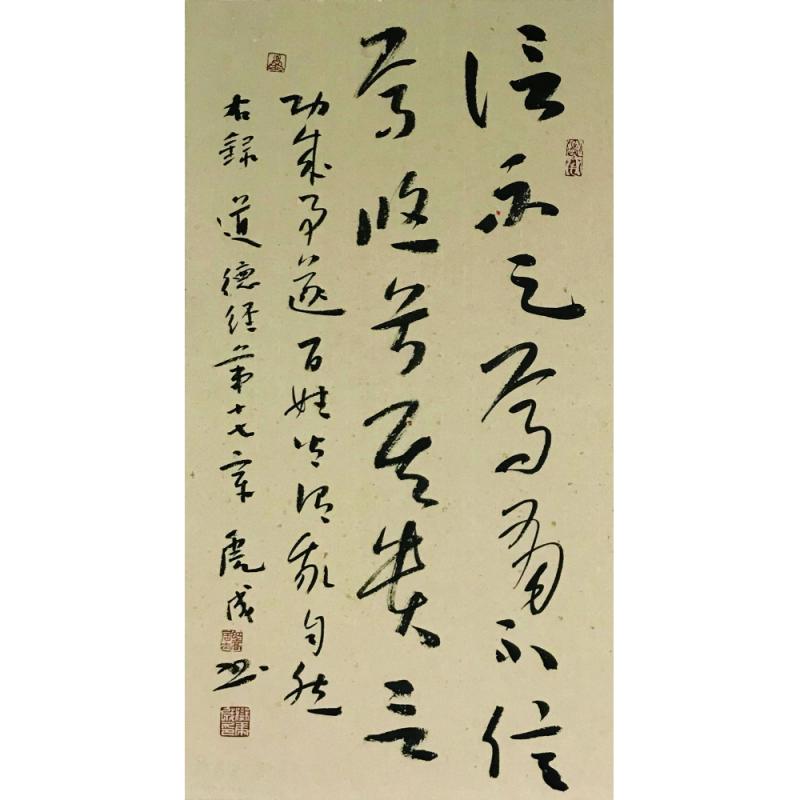 信不足焉有不信
焉悠兮其貴言
功成事遂百姓皆謂我自然
右録道德經第十七章 虎成書